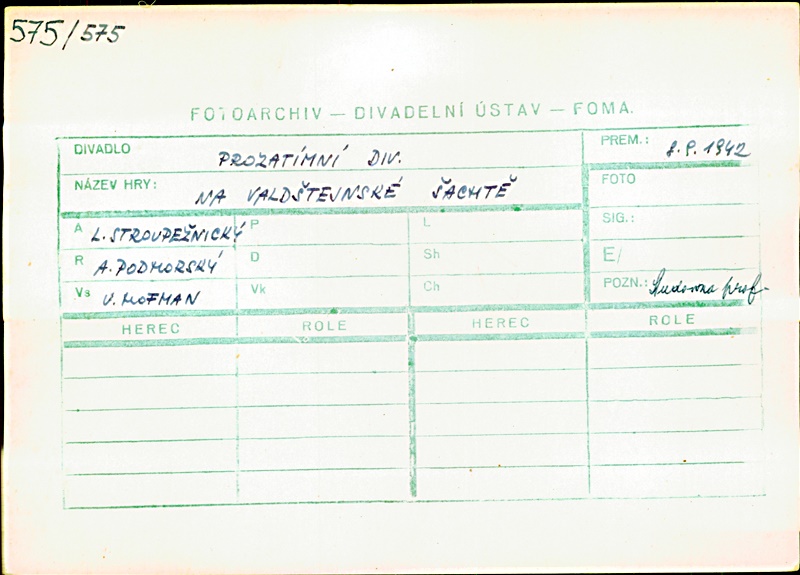 575/575
FOTOARCHIV — DIVADELNÍ ÚSTAV — FOMA.
DIVADLO PROZATÍMNÍ DIV. PREM.: 8.9.1942
NÁZEV HRY: NA VALDŠTEJNSKÉ ŠACHTĚ FOTO
A L. STROUPEŽNICKÝ P L SIG.:
R A. PODHORSKÝ D Sh E/
Vs V. HOFMAN Vk Ch POZN.: prof.
HEREC ROLE HEREC ROLE